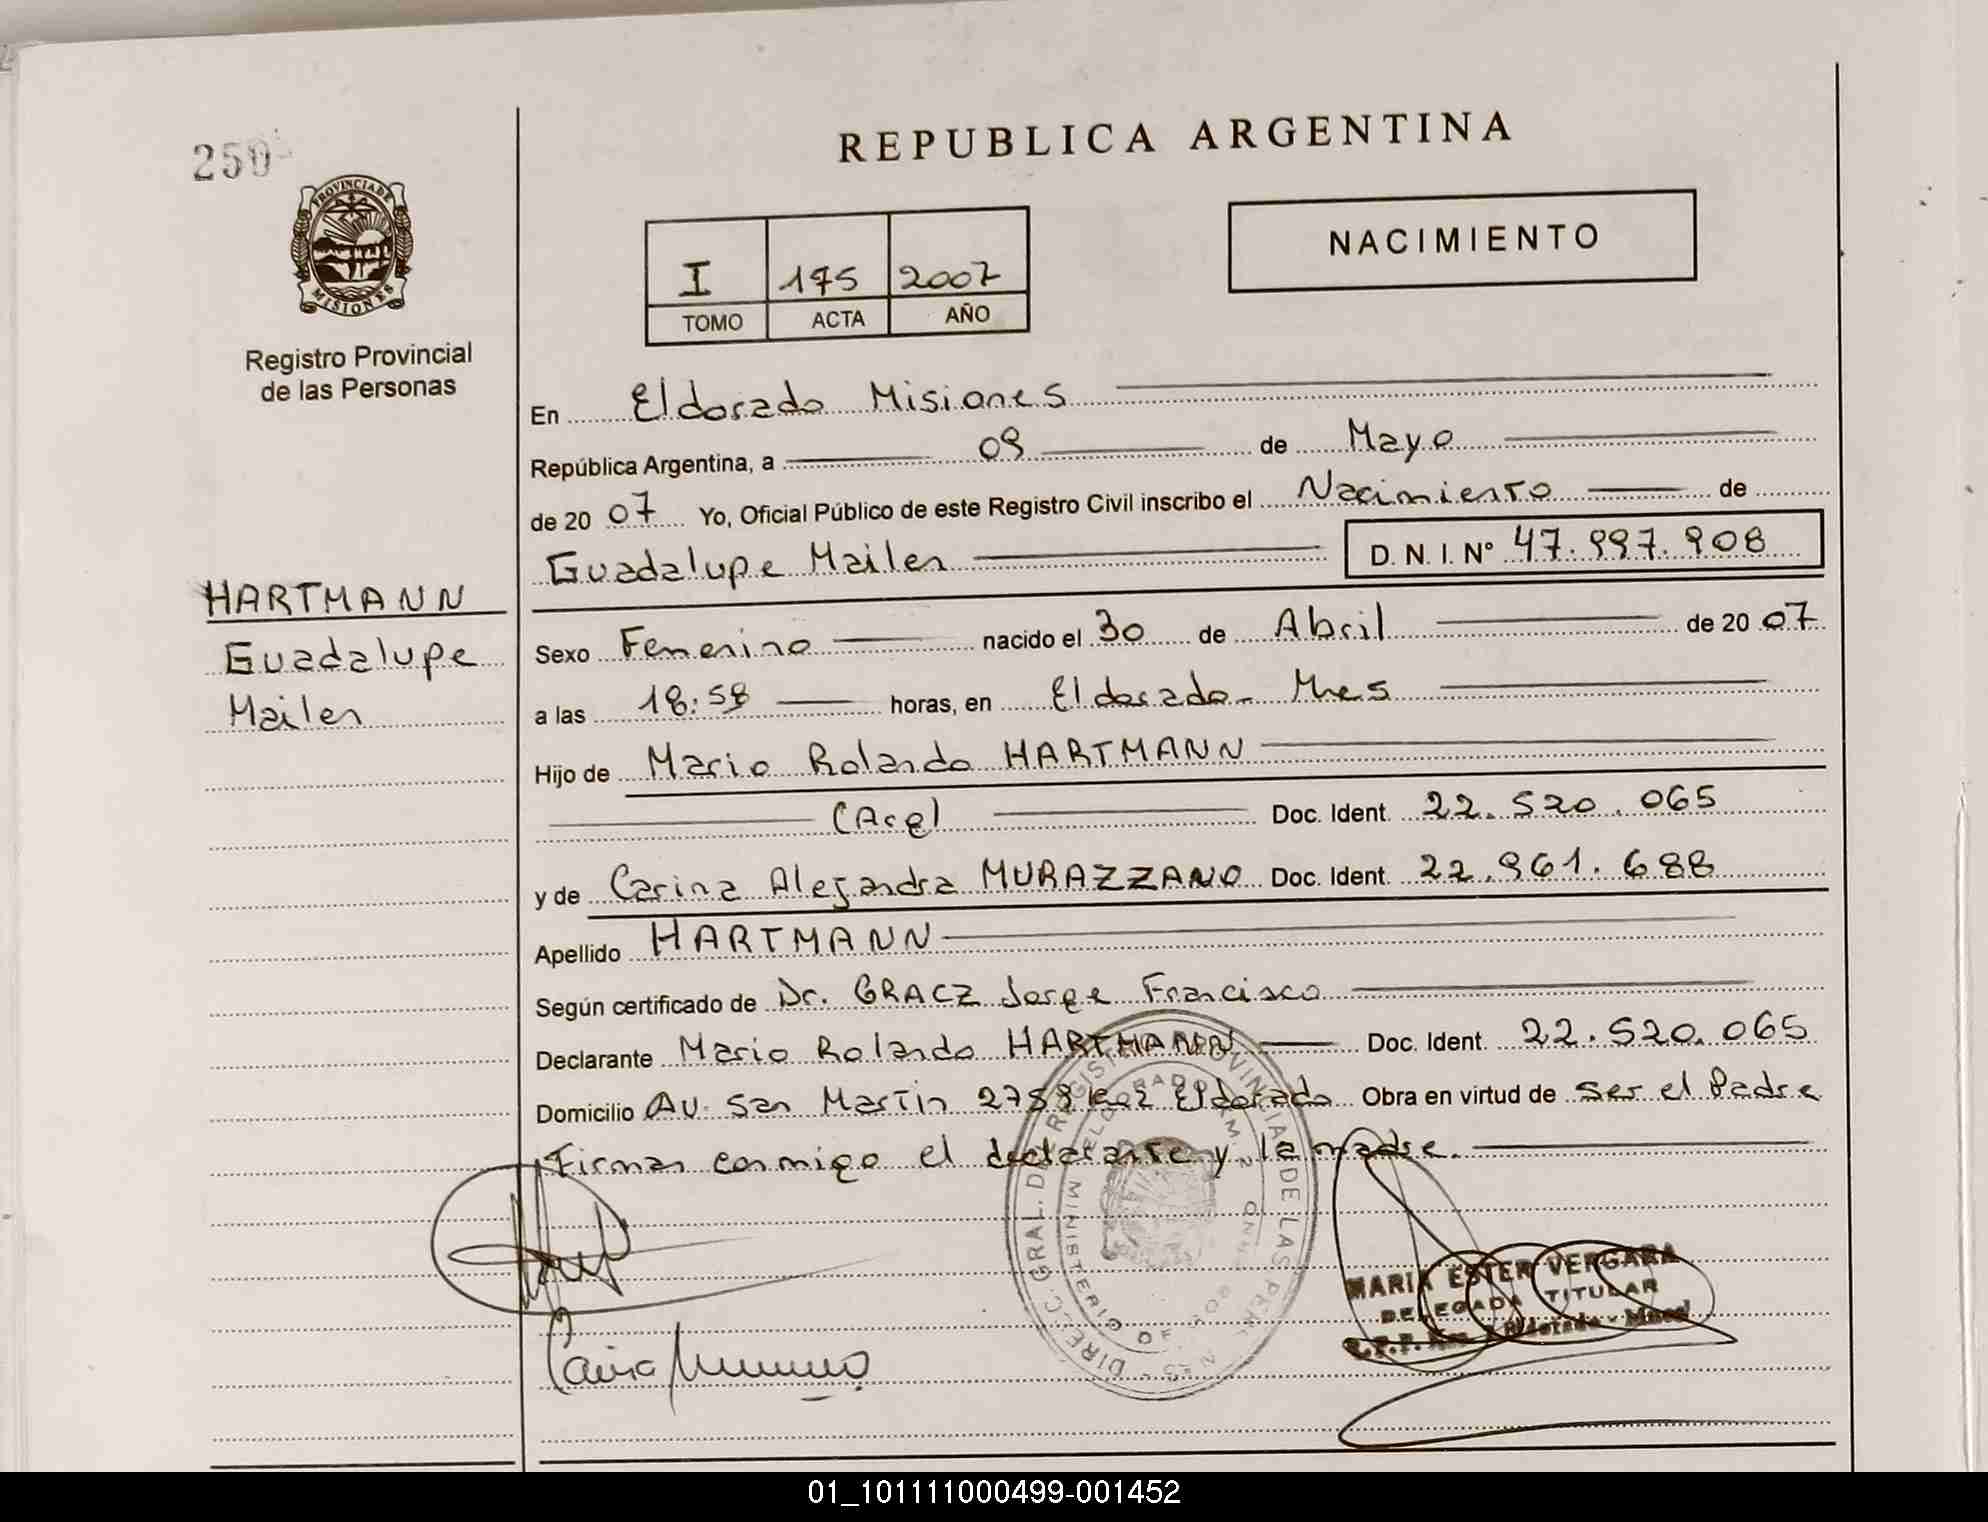 250
REPUBLICA ARGENTINA
PROVINCIA DE
MISIONES
Registro Provincial
de las Personas
I 175 2007
TOMO ACTA AÑO
NACIMIENTO
En Eldorado Misiones
República Argentina, a 09 de Mayo
de 20 07 Yo, Oficial Público de este Registro Civil inscribo el Nacimiento de
Guadalupe Mailen D. N. I. N° 47.997.908
HARTMANN
Guadalupe
Mailen
Sexo Femenino nacido el 30 de Abril de 20 07
a las 18:58 horas, en Eldorado - Mnes
Hijo de Mario Rolando HARTMANN
(Arg) Doc. Ident. 22.520.065
y de Carina Alejandra MURAZZANO Doc. Ident. 22.961.688
Apellido HARTMANN
Según certificado de Dr. GRACZ Jorge Francisco
Declarante Mario Rolando HARTMANN Doc. Ident. 22.520.065
Domicilio Av. San Martin 2758 km2 Eldorado Obra en virtud de ser el Padre
Firman conmigo el declarante y la madre.
MARIA ESTER VERGARA
DELEGADA TITULAR
01_101111000499-001452